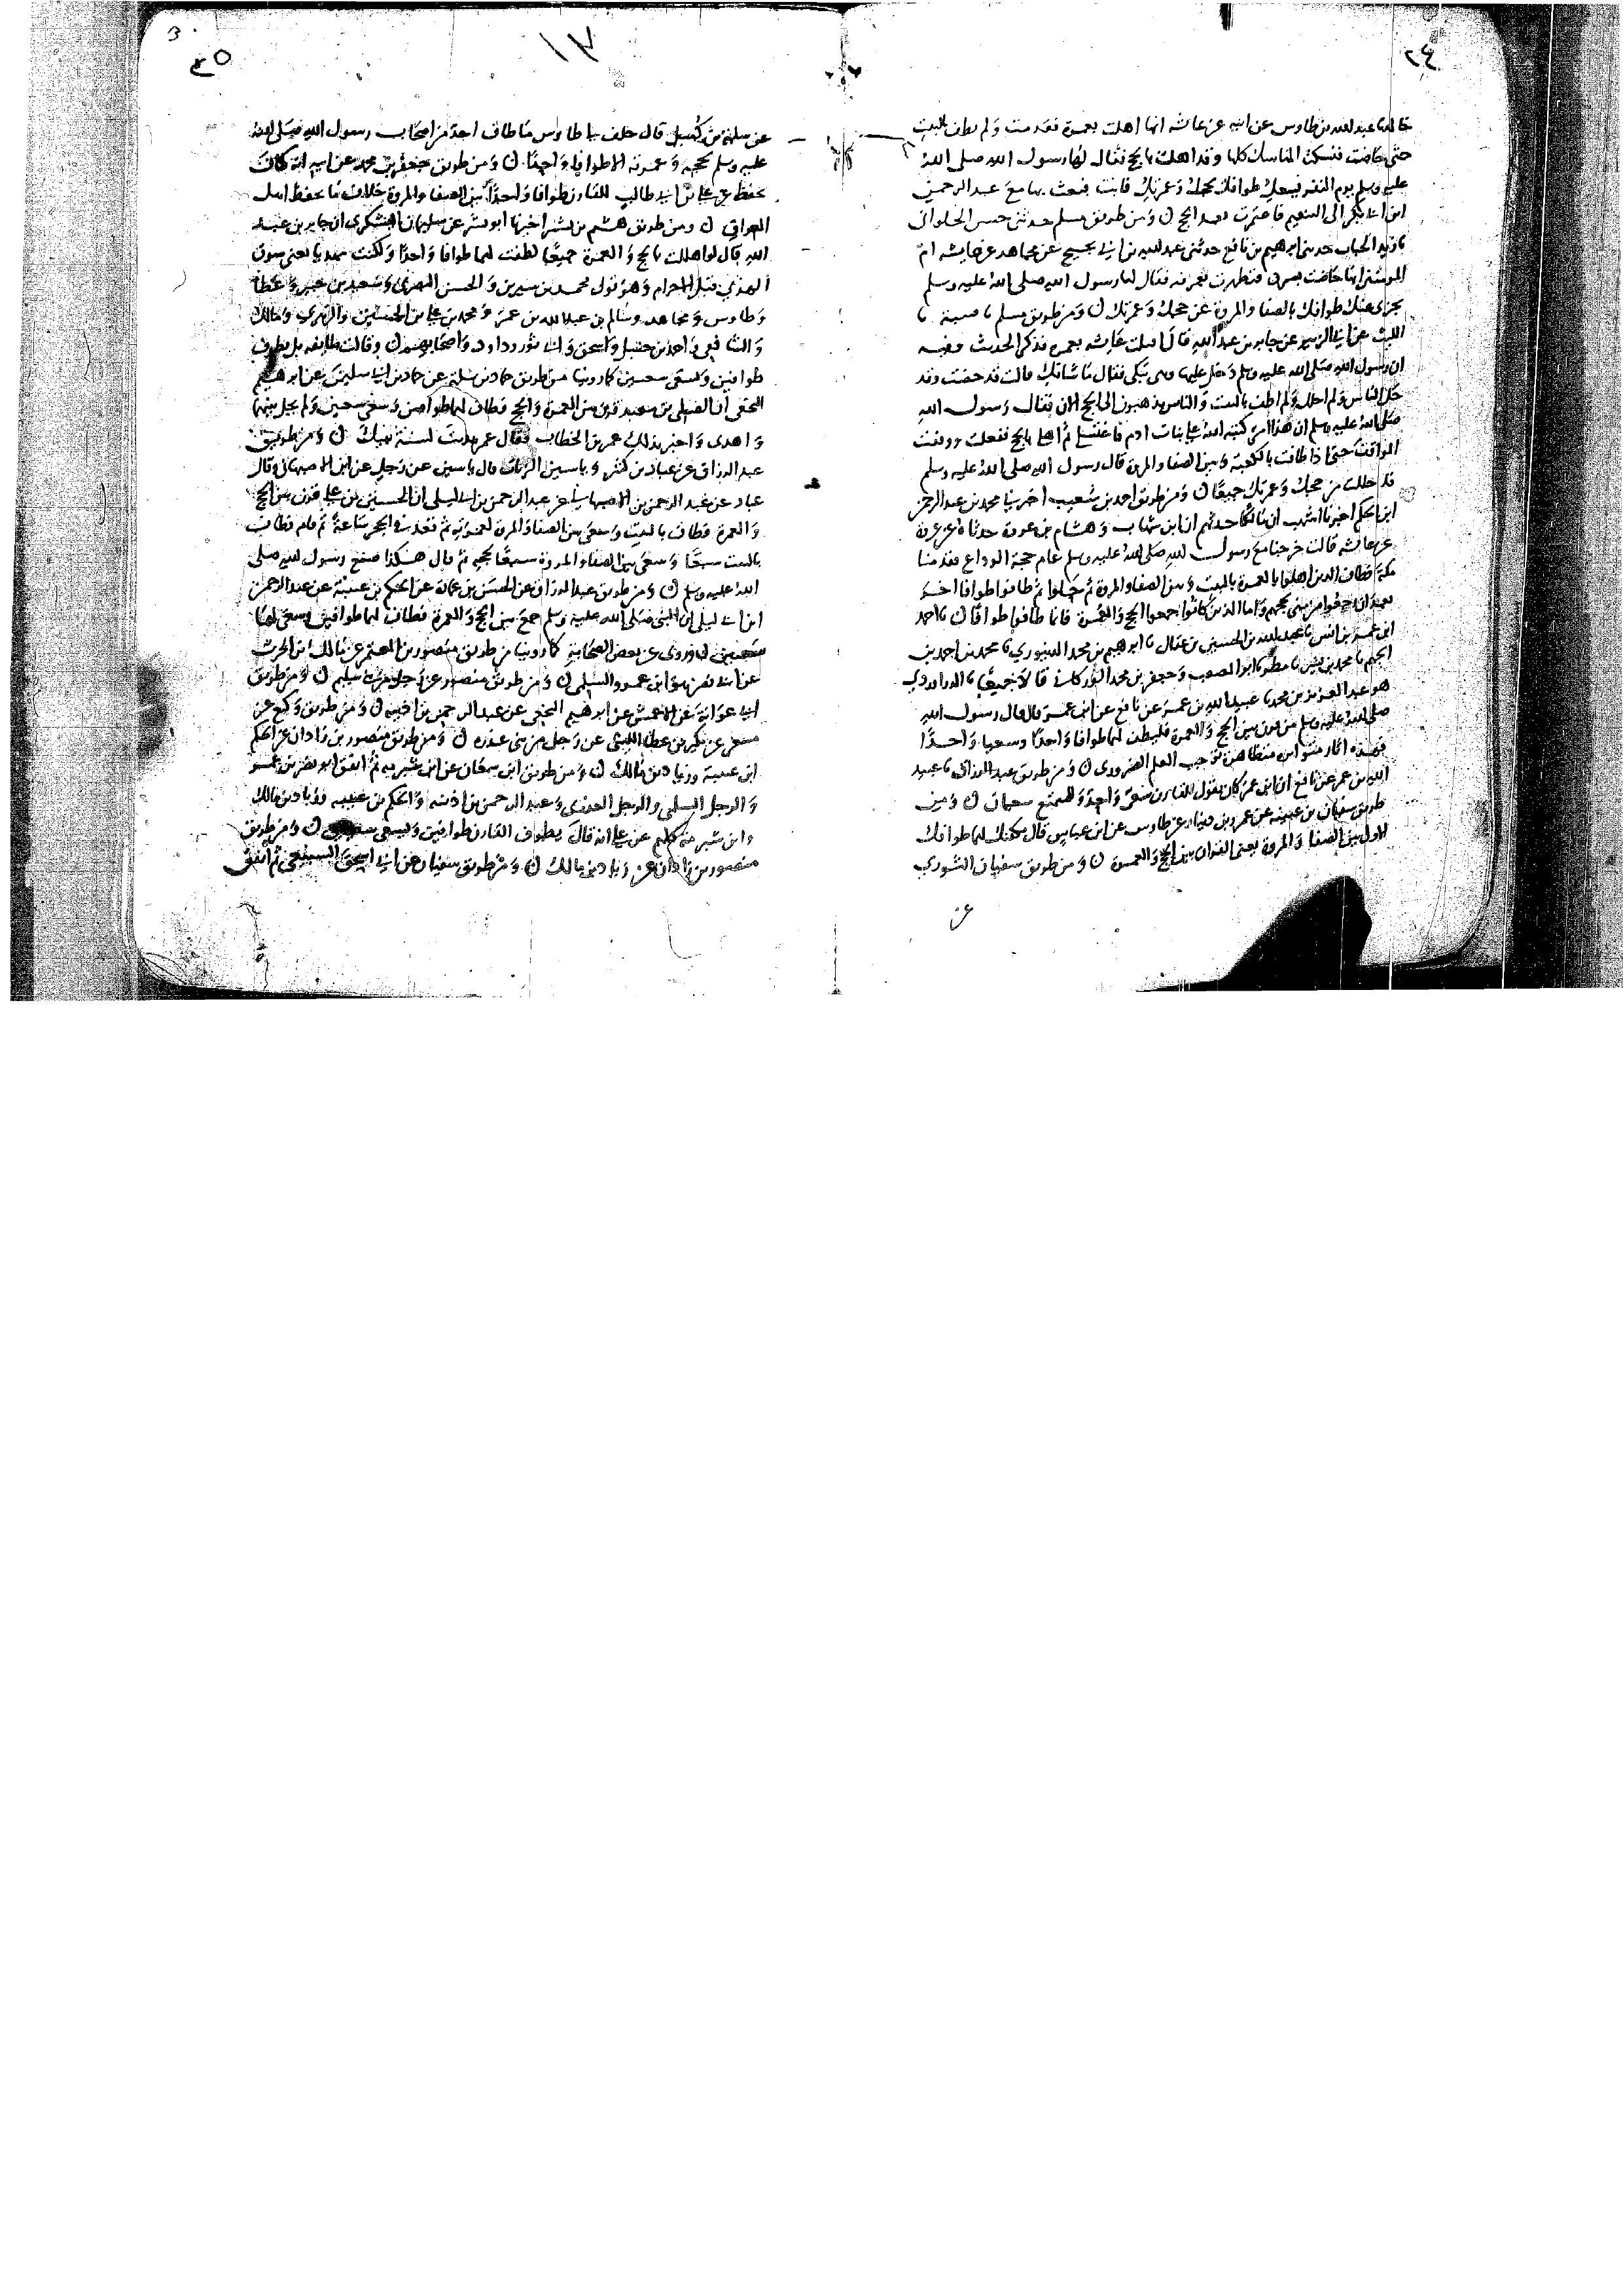 ٢٤
خالد نا عبد الله بن طاوس عن ابيه عن عائشه انها اهلت بعمرة فقدمت ولم تطف بالبيت
حتى حاضت فنسكت المناسك كلها وقد اهلت بالحج فقال لها رسول الله صلى الله
عليه وسلم يوم النفر يسعك طوافك لحجك وعمرتك فابت فبعث بها مع عبد الرحمن
ابن ابي بكر الى التنعيم فاعتمرت بعد الحج ن ومن طريق مسلم حدثني حسن الحلواني
نا زيد الحباب حدثني ابرهيم بن نافع حدثني عبد الله بن ابي نجيح عن مجاهد عن عايشه ام
المومنين انها حاضت بسرف فتطهرت بعرفه فقال لها رسول الله صلى الله عليه وسلم
يجزى عنك طوافك بالصفا والمروة عن حجك وعمرتك ن ومن طريق مسلم نا قتيبة نا
الليث عن ابي الزبير عن جابر بن عبد الله قال اقبلت عايشه بعمره فذكر الحديث وفيه
ان رسول الله صلى الله عليه وسلم دخل عليها وهى تبكى فقال ما شانك قالت قد حضت وقد
حل الناس ولم احلل ولم اطف بالبيت والناس يذهبون الى الحج الان فقال رسول الله
صلى الله عليه وسلم ان هذا امر كتبه الله على بنات ادم فاغتسلي ثم اهلي بالحج ففعلت ووقفت
المواقف حتى اذا طافت بالكعبة وبين الصفا والمروة قال رسول الله صلى الله عليه وسلم
قد حللت من حجك وعمرتك جميعا ن ومن طريق احمد بن شعيب اخبرنا محمد بن عبد الرحمن
ابن الحكم اخبرنا اشهب ان مالكا حدثهم ان ابن شهاب وهشام بن عروة حدثاه عن عروة
عن عايشه قالت خرجنا مع رسول الله صلى الله عليه وسلم عام حجة الوداع فقدمنا
مكة فطاف الذين اهلوا بالعمرة بالبيت وبين الصفا والمروة ثم حلوا ثم طافوا طوافا اخر
بعد ان رجعوا من منى لحجهم واما الذين كانوا جمعوا الحج والعمرة فانما طافوا طوافا ن نا احمد
ابن عمر بن انس نا عبد الله بن الحسين بن عقال نا ابرهيم بن محمد الدينوري نا محمد بن احمد بن
الجهم نا محمد بن بشر نا مطر نا ابو المصعب وجعفر بن محمد الوركاني قالا جميعا نا الدراوردي
هو عبد العزيز بن محمد نا عبيد الله بن عمر عن نافع عن ابن عمر قال قال رسول الله
صلى الله عليه وسلم من قرن بين الحج والعمرة فليطف لهما طوافا واحدا وسعيا واحدا
فهذه اثار متواترة متظاهرة توجب العلم الضرورى ن ومن طريق عبد الرزاق نا عبيد
الله بن عمر عن نافع ان ابن عمر كان يقول للقارن سعي واحد وللمتمتع سعيان ن ومن
طريق سفيان بن عيينة عن عمرو بن دينار عن طاوس عن ابن عباس قال يكفيك لهما طوافك
الاول بين الصفا والمروة يعني القران بين الحج والعمرة ن ومن طريق سفيان الثوري
عن
١٣
٢٥
عن سلمة بن كهيل قال حلف لي طاوس ما طاف احد من اصحاب رسول الله صلى الله
عليه وسلم لحجه وعمرته الا طوافا واحدا ن ومن طريق جعفر بن محمد عن ابيه انه كان
يحفظ عن علي بن ابي طالب للقارن طوافا واحدا بين الصفا والمروة خلاف ما يحفظ اهل
العراق ن ومن طريق هشيم بن بشير اخبرنا ابو بشر عن سليمان اليشكرى ان جابر بن عبد
الله قال لو اهللت بالحج والعمرة جميعا لطفت لهما طوافا واحدا ولكنت مهديا يعني سوق
الهدي قبل الاحرام وهو قول محمد بن سيرين والحسن البصرى وسعيد بن جبير وعطا
وطاوس ومجاهد وسالم بن عبد الله بن عمر ومحمد بن علي بن الحسين والزهري ومالك
والشافعي واحمد بن حنبل واسحق وابي ثور وداود واصحابهم ن وقالت طايفه بل يطوف
طوافين ويسعى سعيين كما روينا من طريق حماد بن سلمة عن حماد بن ابي سليمن عن ابرهيم
النخعي ان الصبي بن معبد قرن بين العمرة والحج فطاف لهما طوافين وسعى سعيين ولم يحل بينهما
واهدى واخبر بذلك عمر بن الخطاب فقال عمر هديت لسنة نبيك ن ومن طريق
عبد الرزاق عن عباد بن كثير وياسين الزيات قال ياسين عن رجل عن ابن الاصبهاني وقال
عباد عن عبد الرحمن بن الاصبهاني عن عبد الرحمن بن ابي ليلى ان الحسين بن علي قرن بين الحج
والعمرة فطاف بالبيت وسعى بين الصفا والمروة لعمرته ثم قعد في الحجر ساعة ثم قام فطاف
بالبيت سبعا وسعى بين الصفا والمروة سبعا لحجه ثم قال هكذا صنع رسول الله صلى
الله عليه وسلم ن ومن طريق عبد الرزاق عن الحسن بن عمارة عن الحكم بن عتيبة عن عبد الرحمن
ابن ابي ليلى ان النبي صلى الله عليه وسلم جمع بين الحج والعمرة فطاف لهما طوافين وسعى لهما
سعيين ن وروى عن بعض الصحابة كما روينا من طريق منصور بن المعتمر عن مالك بن الحرث
عن ابي نصر هو ابن عمرو السلمي ن ومن طريق منصور عن رجل من بني سليم ن ومن طريق
ابي عوانة عن الاعمش عن ابرهيم النخعي عن عبد الرحمن بن اذينه ن ومن طريق وكيع عن
مسعر عن بكير بن عطا الليثي عن رجل من بني عذره ن ومن طريق منصور بن زاذان عن الحكم
ابن عتيبة وزياد بن مالك ن ومن طريق ابن سمعان عن ابن شبرمه ثم اتفق ابو نصر بن عمرو
والرجل السلمي والرجل العذرى وعبد الرحمن بن اذينه والحكم بن عتيبه وزياد بن مالك
وابن شبرمة كلهم عن علي انه قال يطوف القارن طوافين ويسعى سعيين ن ومن طريق
منصور بن زاذان عن زياد بن مالك ن ومن طريق سفيان عن ابي اسحق السبيعي ثم اتفق